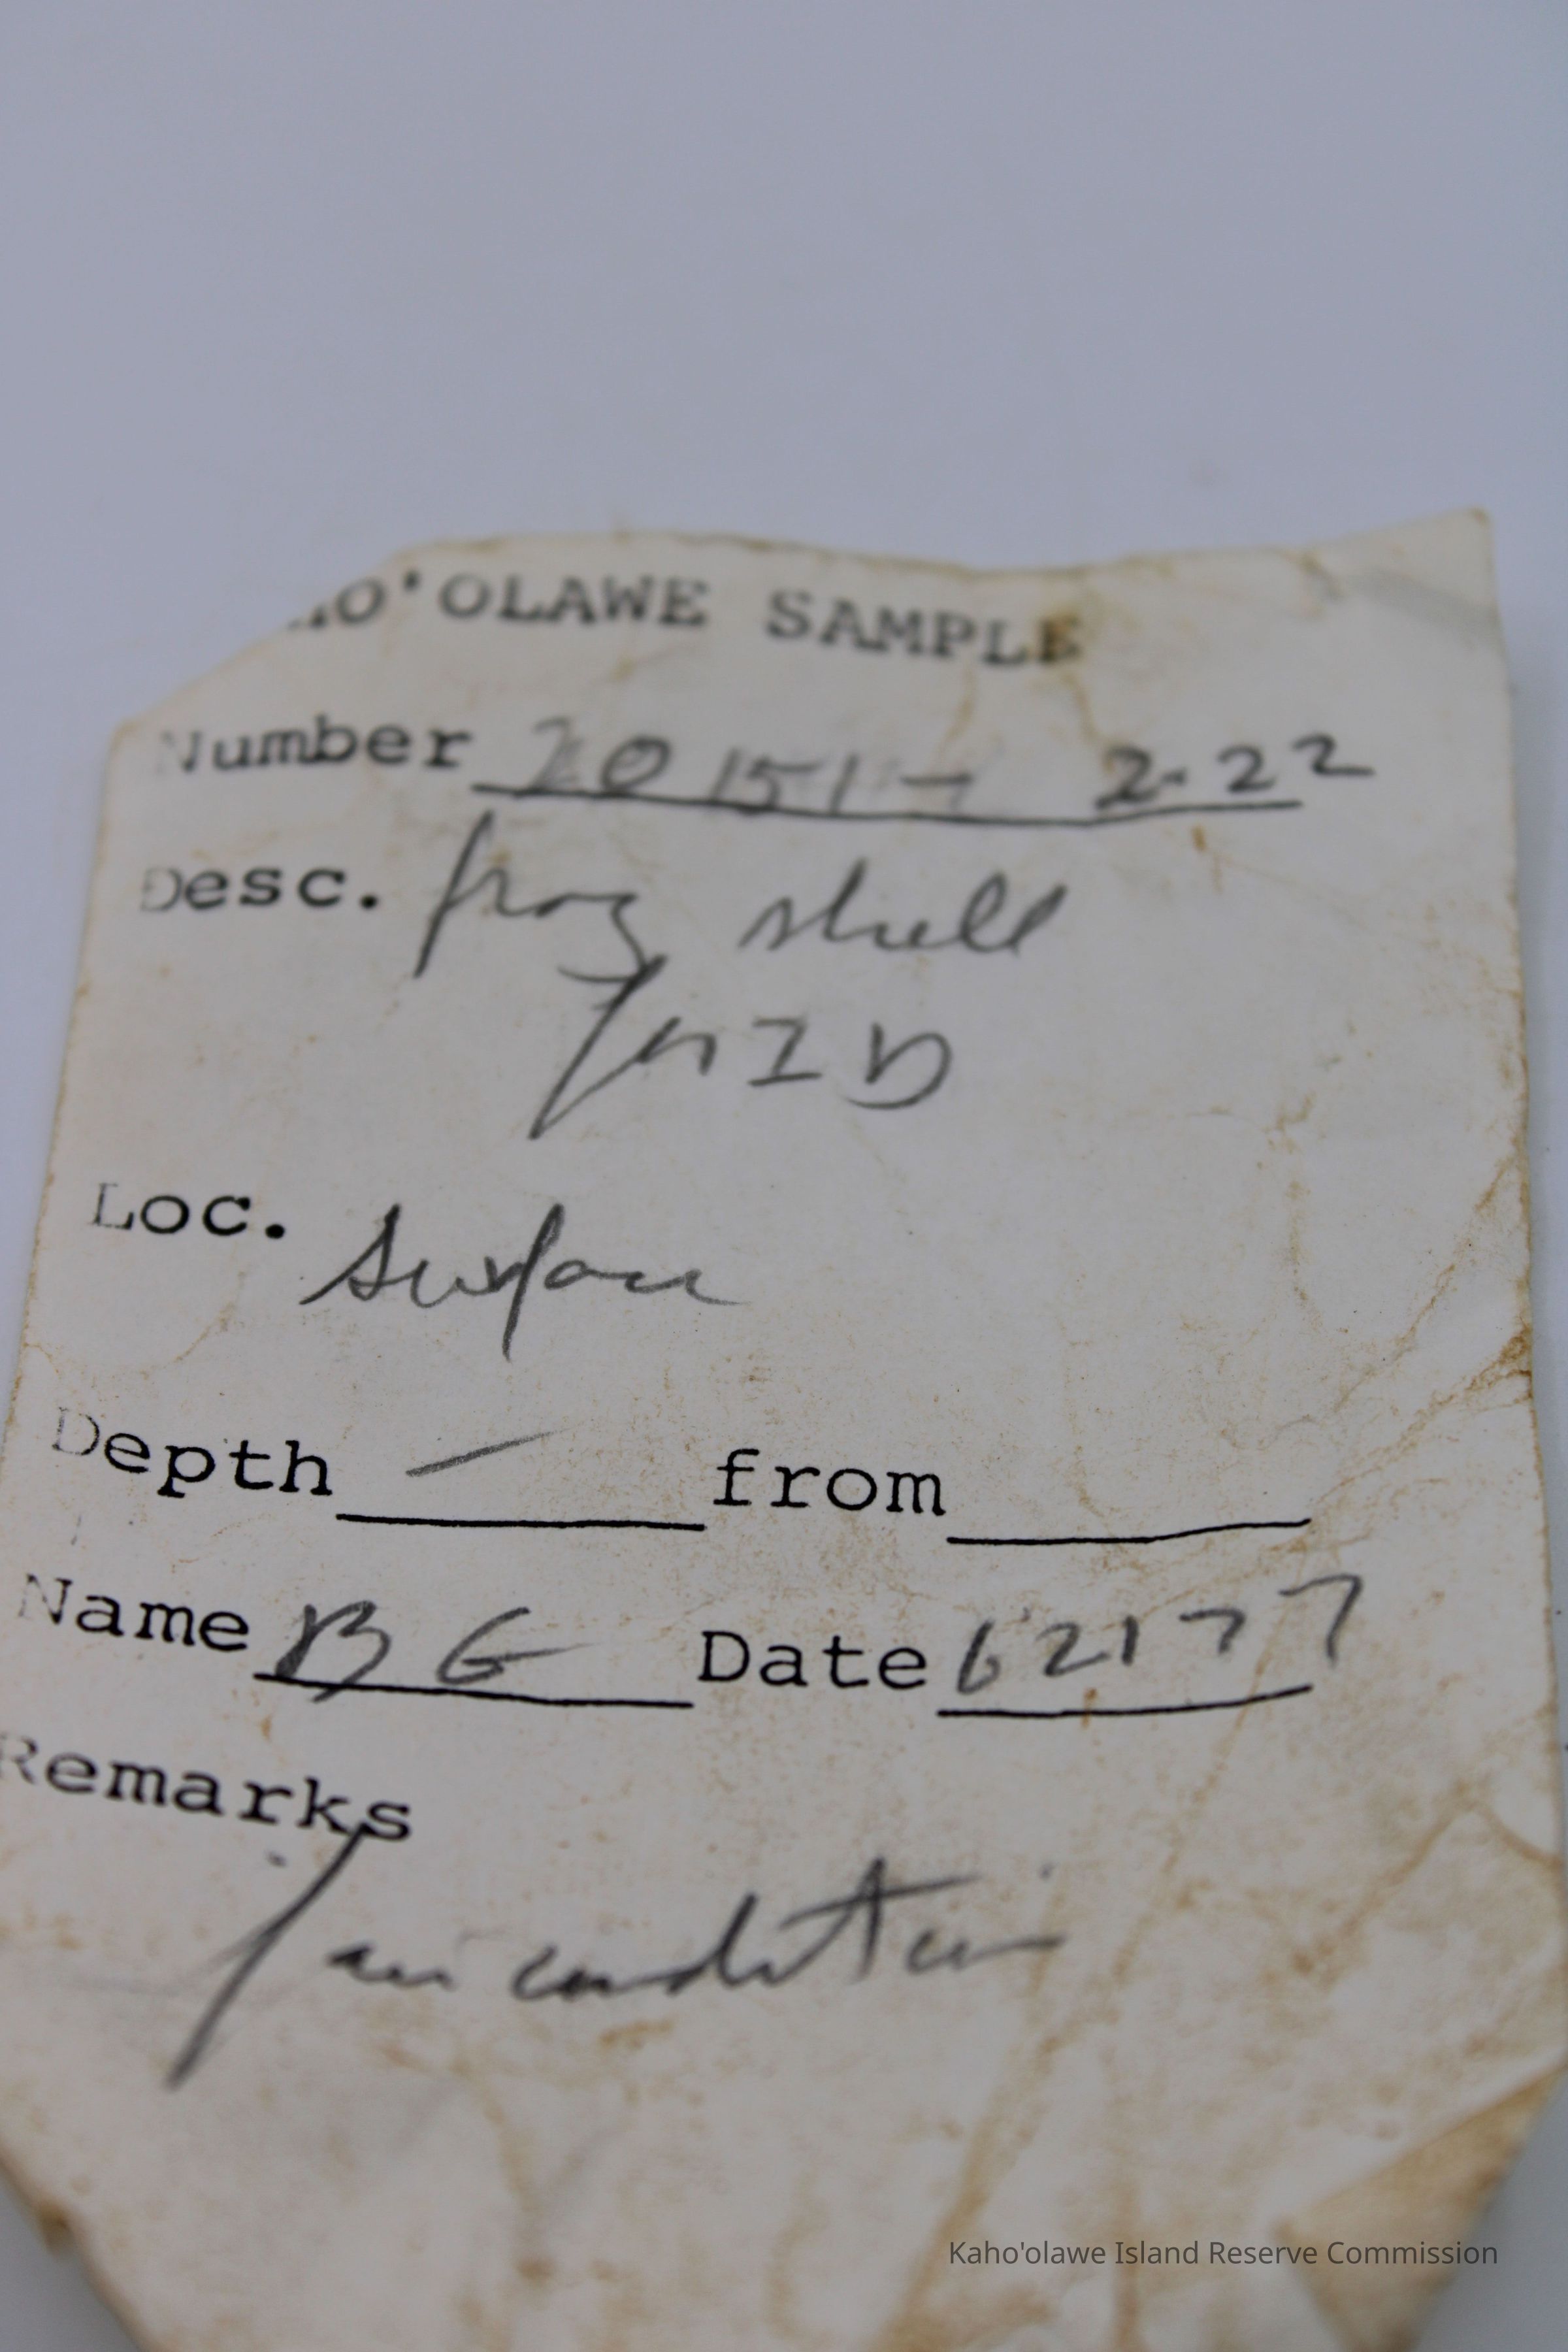 HO'OLAWE SAMPLE
Number 20 151- 2-22
Desc. frog shell
for ID
Loc. Surface
Depth — from
Name BG Date 62177
Remarks
fair condition
Kaho'olawe Island Reserve Commission